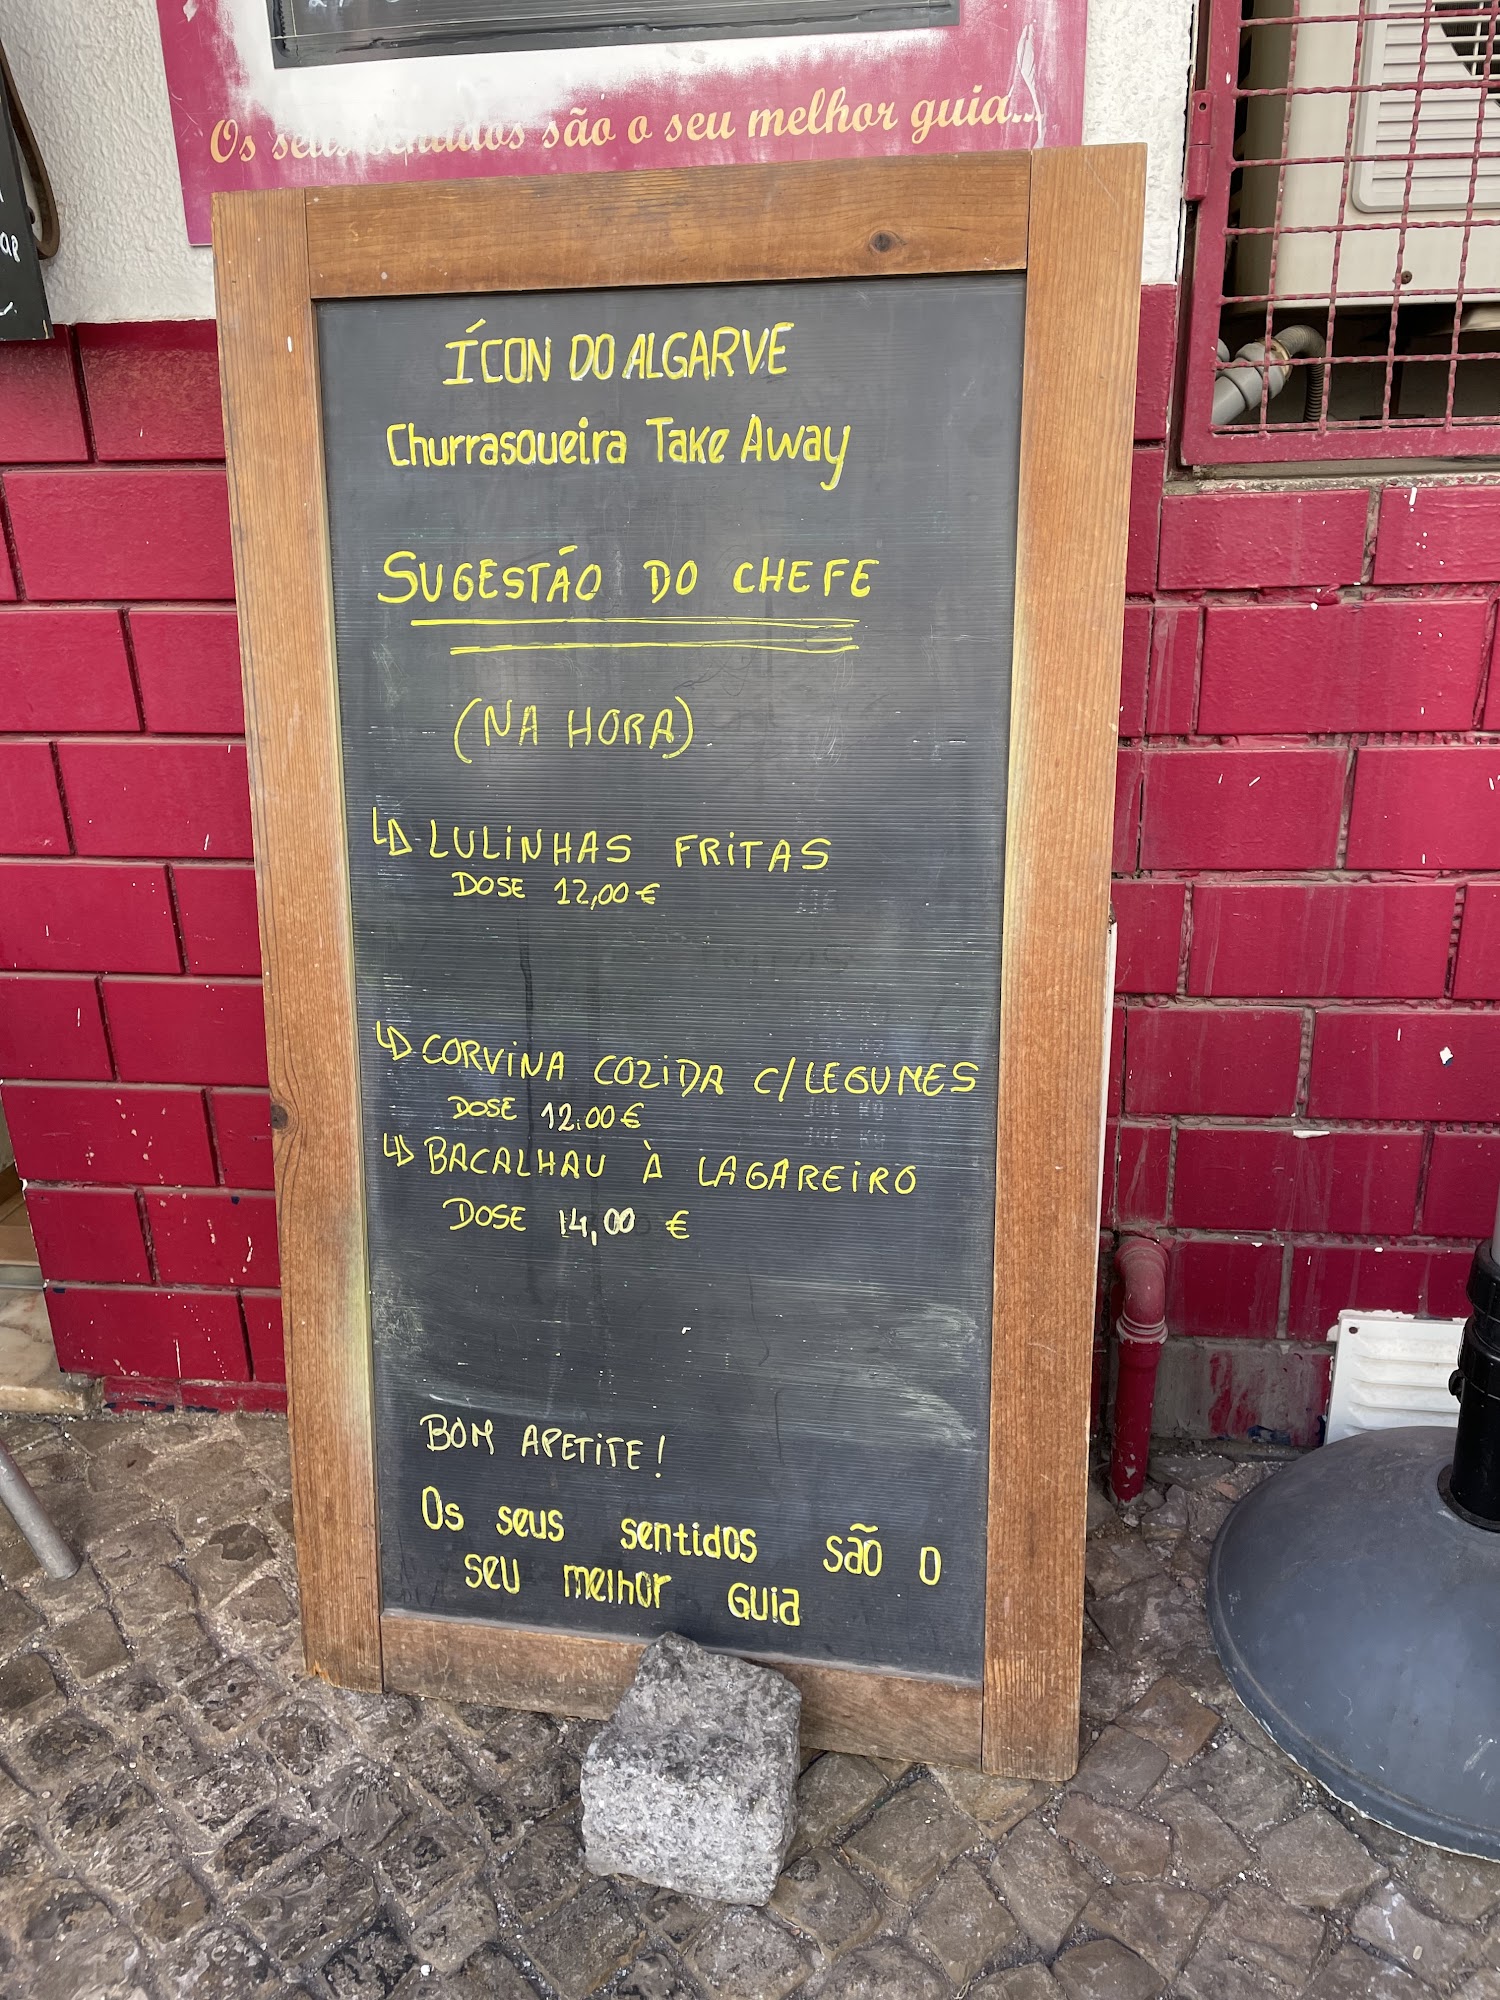 Os seus sentidos são o seu melhor guia...
ÍCON DO ALGARVE
Churrasqueira Take Away
SUGESTÃO DO CHEFE
(NA HORA)
↳ LULINHAS FRITAS
DOSE 12,00 €
↳ CORVINA COZIDA C/LEGUMES
DOSE 12.00 €
↳ BACALHAU À LAGAREIRO
DOSE 14,00 €
BOM APETITE!
Os seus sentidos são o
seu melhor guia